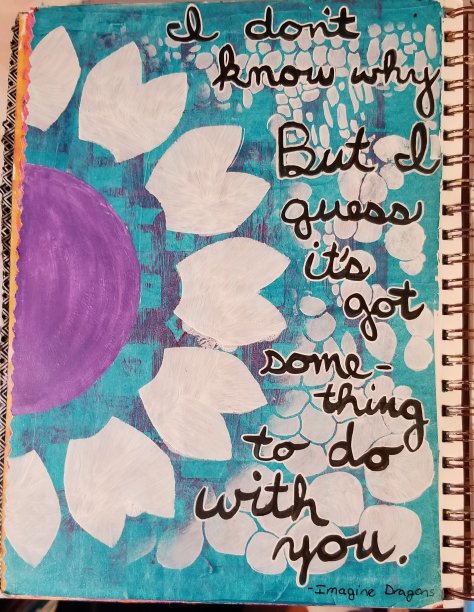 I don't
know why
But I
guess
it's
got
some-
thing
to do
with
you.
-Imagine Dragons